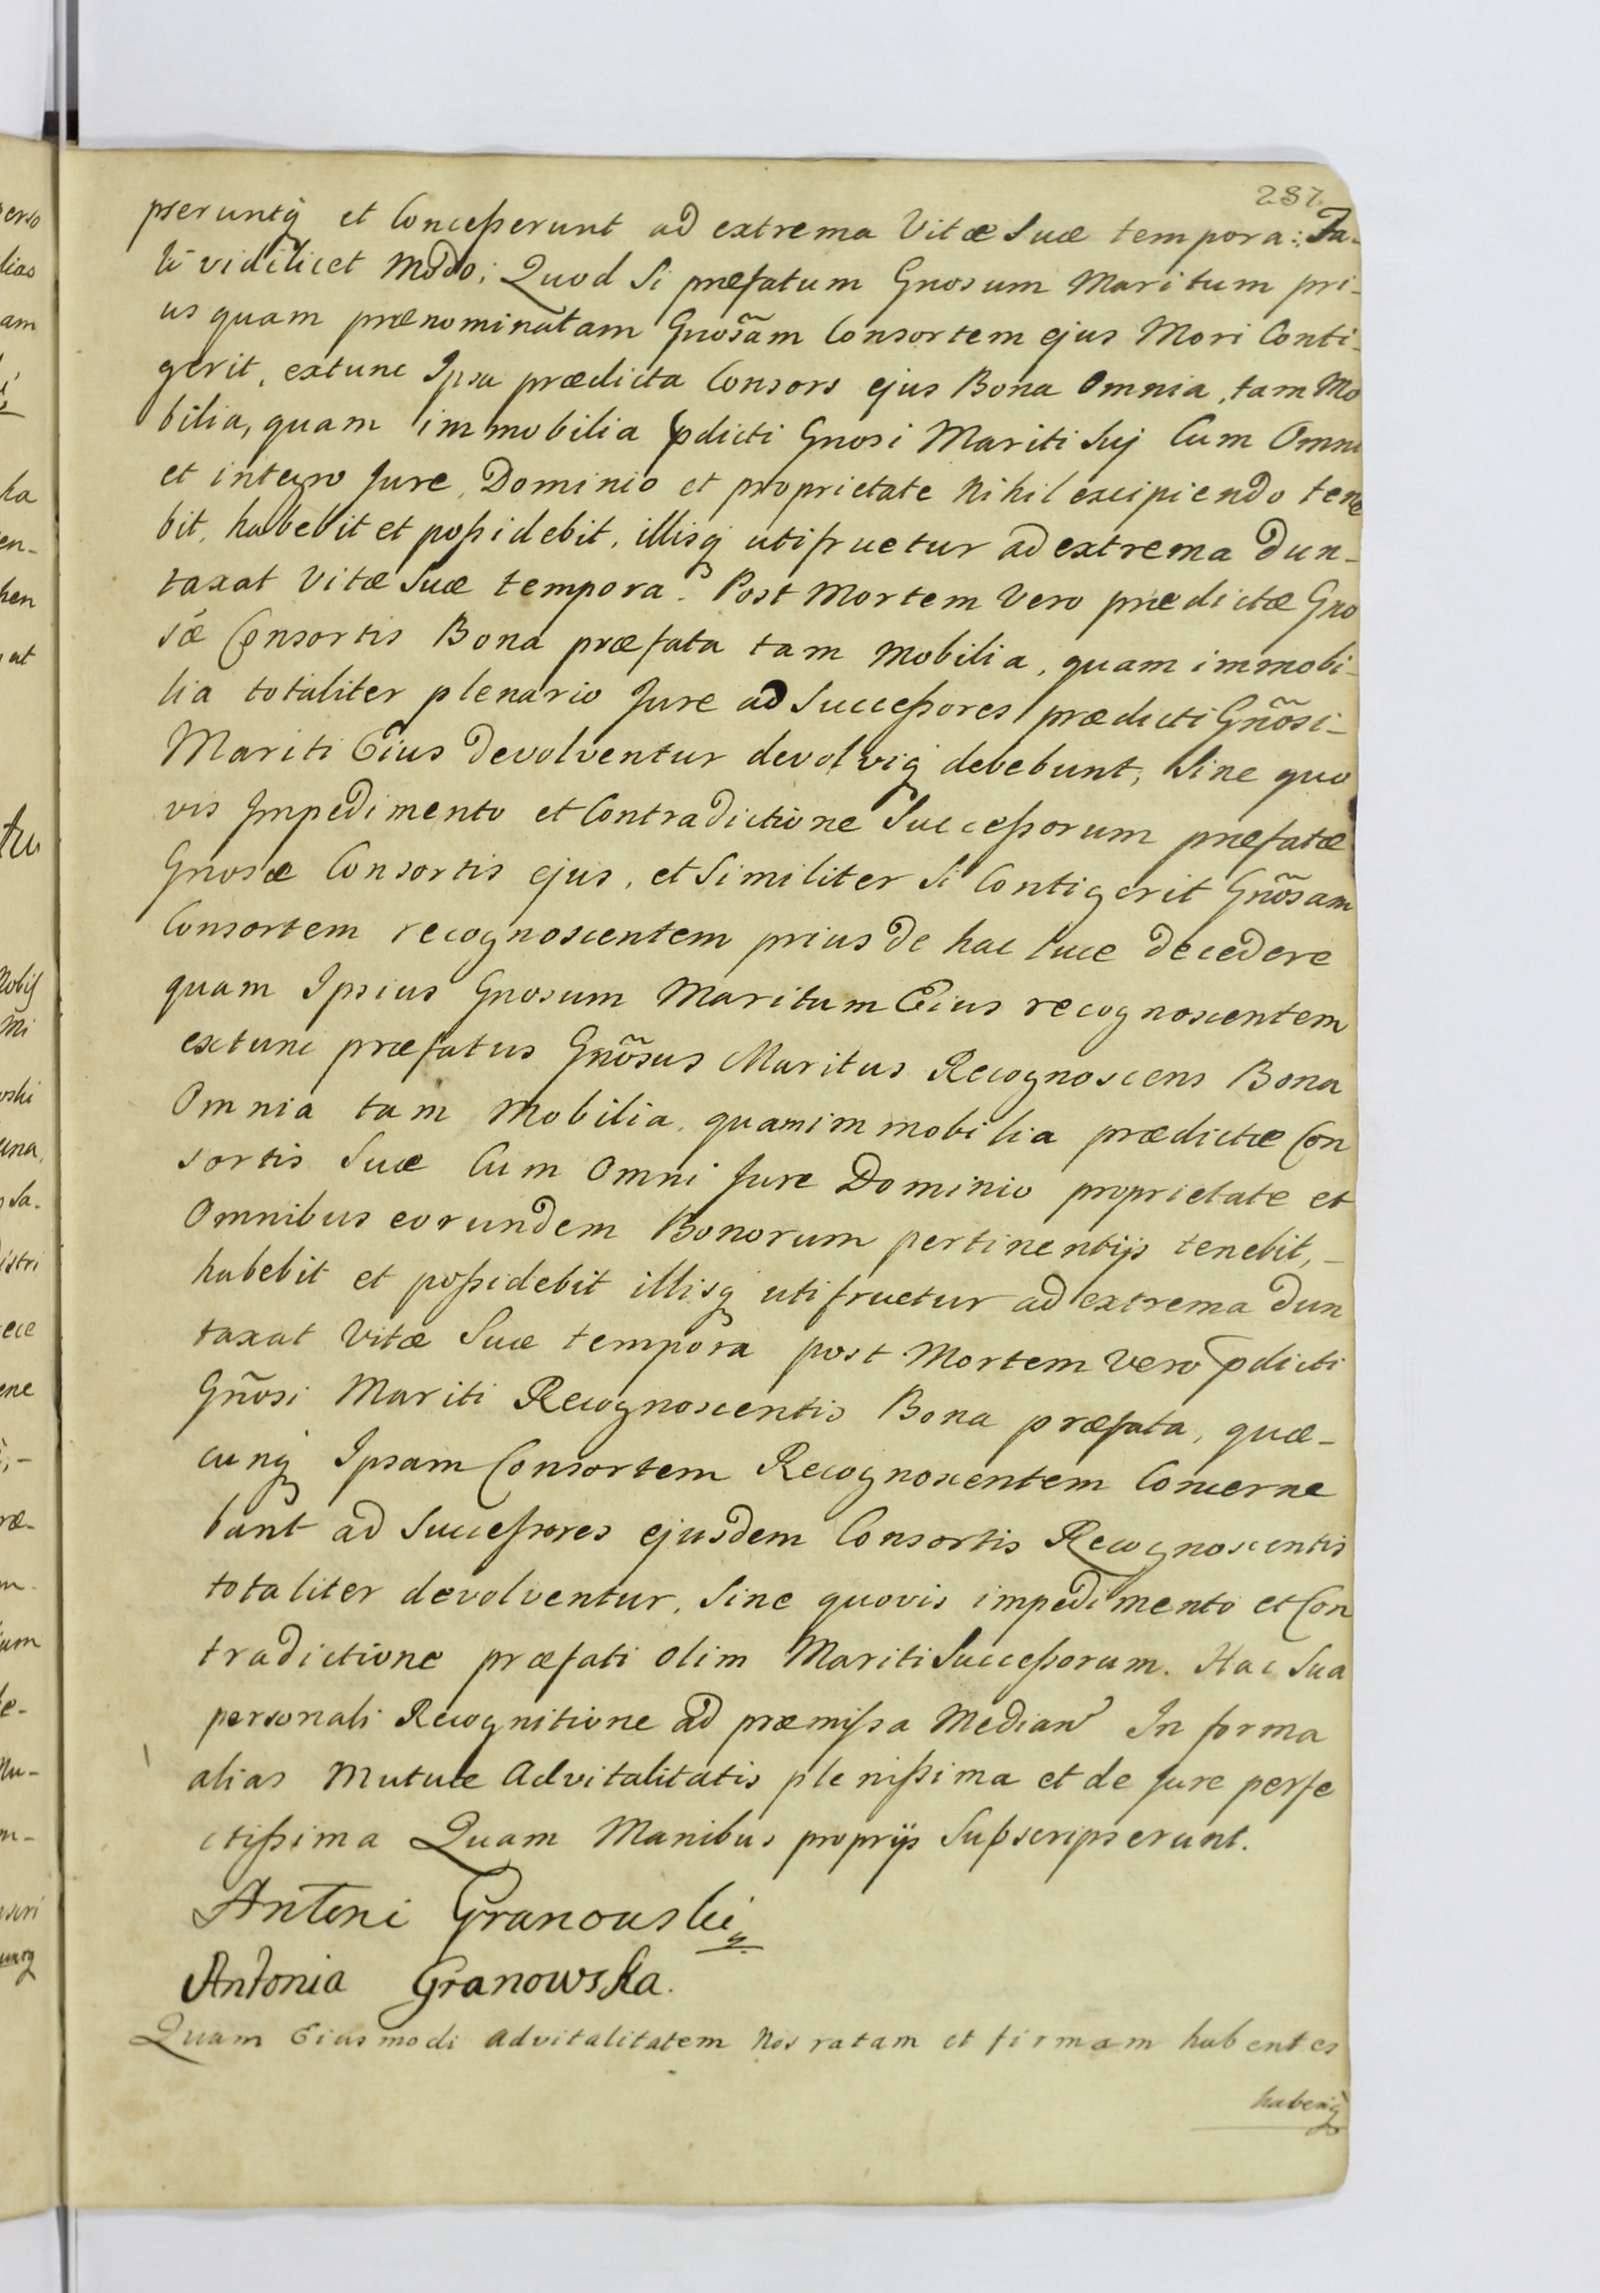 287.
pseruntq̃ et Conceſserunt ad extrema Vitæ Suæ tempora: Ta-
li videlicet Modo; Quod Si præfatum Gnosum Maritum pri-
us quam prænominatam Gnosãm Consortem ejus Mori Conti-
gerit, extunc Ipsa prædicta Consors ejus Bona Omnia, tam Mo
bilia, quam immobilia pdicti Gnosi Mariti Suj Cum Omni
et integro Jure, Dominio et proprietate Nihil excipiendo tene
bit, habebit et poſsidebit, illisq utifruetur ad extrema Dun-
taxat Vitæ Suæ tempora. Post Mortem Vero prædictæ Gno
sæ Consortis Bona præfata tam Mobilia, quam immobi-
lia totaliter plenario Jure ad Succeſsores prædicti Gñosi-
Mariti Eius devolventur devolviq debebunt, Sine quo
vis Impedimento et Contradictione Succeſsorum præfatæ
Gnosæ Consortis ejus, et Similiter Si Contigerit Gñosam
Consortem recognoscentem prius de hac luce decedere
quam Ipsius Gnosum Maritum Eius recognoscentem
extunc præfatus Gñosus Maritus Recognoscens Bona
Omnia tam Mobilia, quam immobilia prædictæ Con
sortis Suæ Cum Omni Jure Dominio proprietate et
Omnibus eorundem Bonorum pertinentijs tenebit,-
habebit et poſsidebit illisq utifruetur ad extrema dun
taxat Vitæ Suæ tempora post Mortem Vero pdicti
Gñosi Mariti Recognoscentis Bona præfata, quæ-
cunq Ipsam Consortem Recognoscentem Concerne
bunt ad Succeſsores ejusdem Consortis Recognoscentis
totaliter devolventur, Sine quovis impedimento et Con
tradictione præfati olim Mariti Succeſsorum. Hac Sua
personali Recognitione ad præmiſsa Median̄ In forma
alias Mutuæ Advitalitatis pleniſsima et de Jure perfe
ctiſsima Quam Manibus proprijs Subscripserunt.
Antoni Granowski
Antonia Granowska.
Quam Eiusmodi Advitalitatem Nos ratam et firmam habentes
haberiq